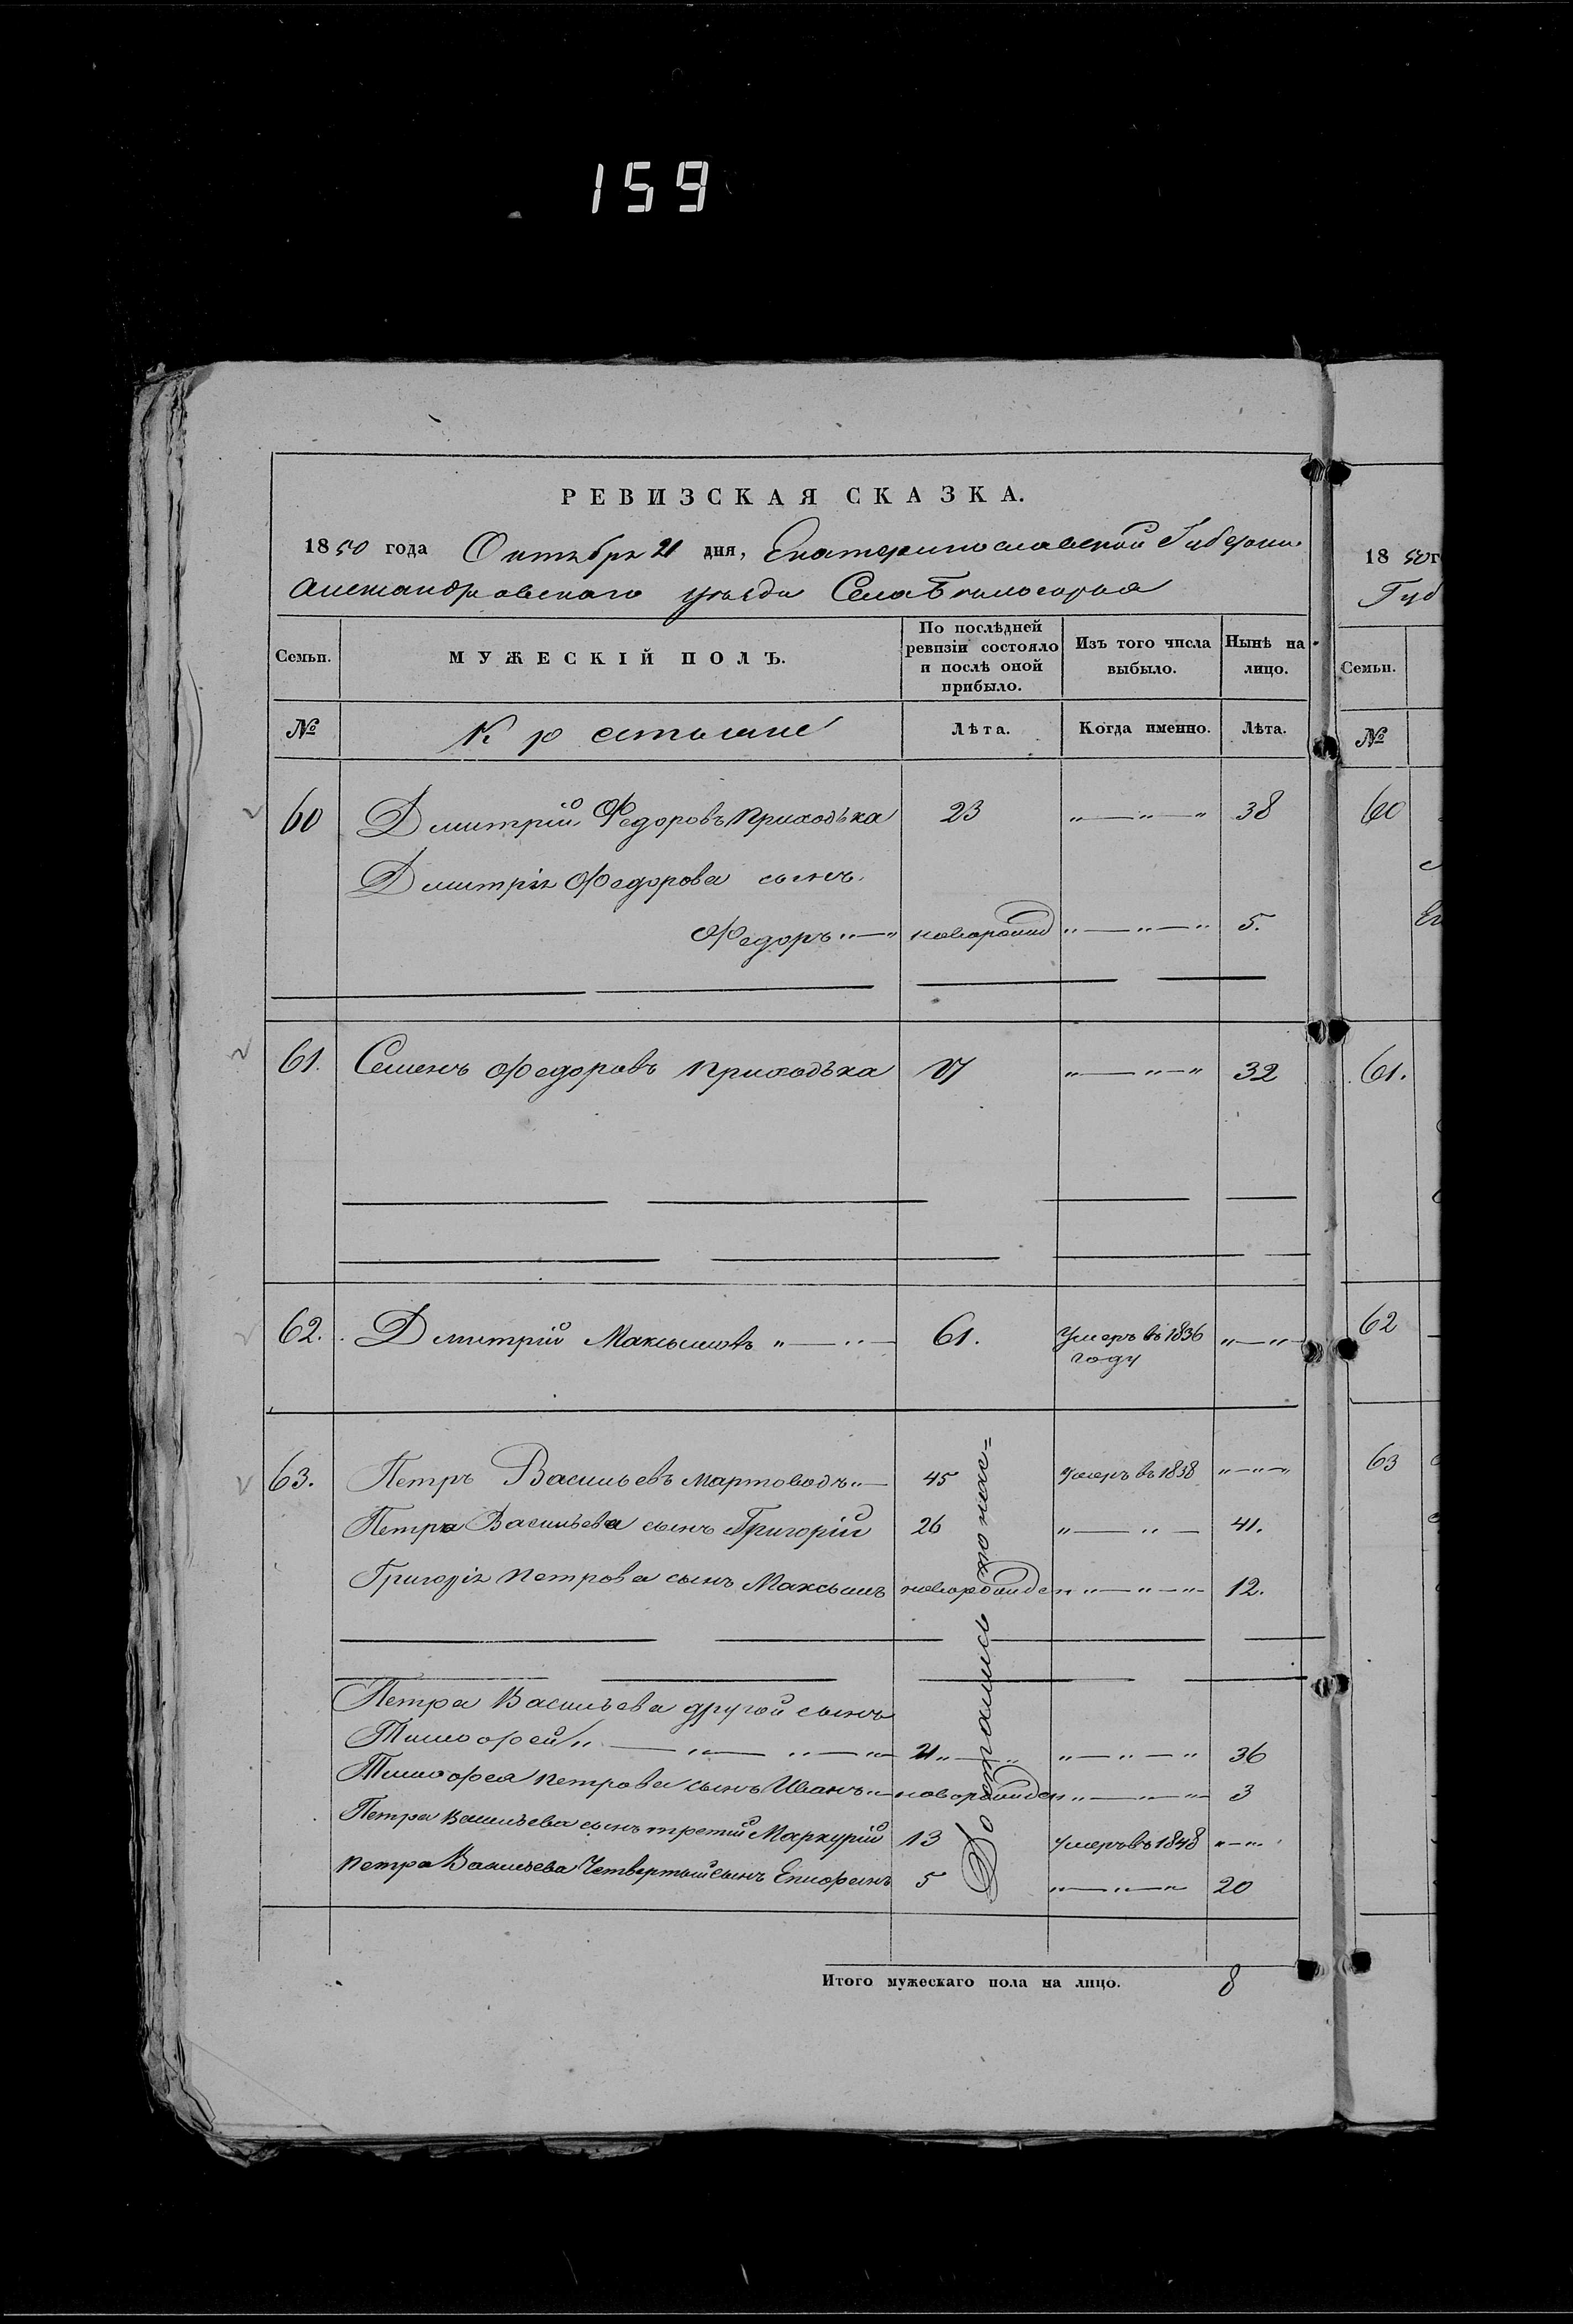 159
РЕВИЗСКАЯ СКАЗКА.
1850 года Октября 21 дня, Екатеринославской Губерніи
Александровскаго уѣзда Села Бѣлогорья
Семьи.
МУЖЕСКІЙ ПОЛЪ.
По послѣдней ревизіи состояло и послѣ оной прибыло.
Изъ того числа выбыло.
Нынѣ на лицо.
№
Крестьяне
Лѣта.
Когда именно.
Лѣта.
60 Дмитрій Федоровъ Приходька 23 „—„—„ 38
Дмитрія Федорова сынъ
Федоръ „—„ новорожд „—„—„ 5.
61. Семенъ Федоровъ Приходька 17 „—„—„ 32
62. Дмитрій Максимовъ „—„— 61. Умеръ въ 1836 „—„
году
63. Петръ Васильевъ Мартоводъ „— 45 умеръ въ 1838 „—„—„
Петра Васильева сынъ Григорій 26 „—„— 41.
Григорія Петрова сынъ Максимъ новорожден „—„—„ 12.
Петра Васильева другой сынъ
Тимофей „—„—„—„ 21 „—„ „—„—„ 36
Тимофея Петрова сынъ Иванъ „ новорожден „—„—„ 3
Петра Васильева сынъ третій Маркурій 13 умеръ въ 1848 „—„
Петра Васильева Четвертый сынъ Епифанъ 5 „—„—„ 20
Итого мужескаго пола на лицо. 8
18 50 г
Губ
Семьи.
№
60
61.
62
63